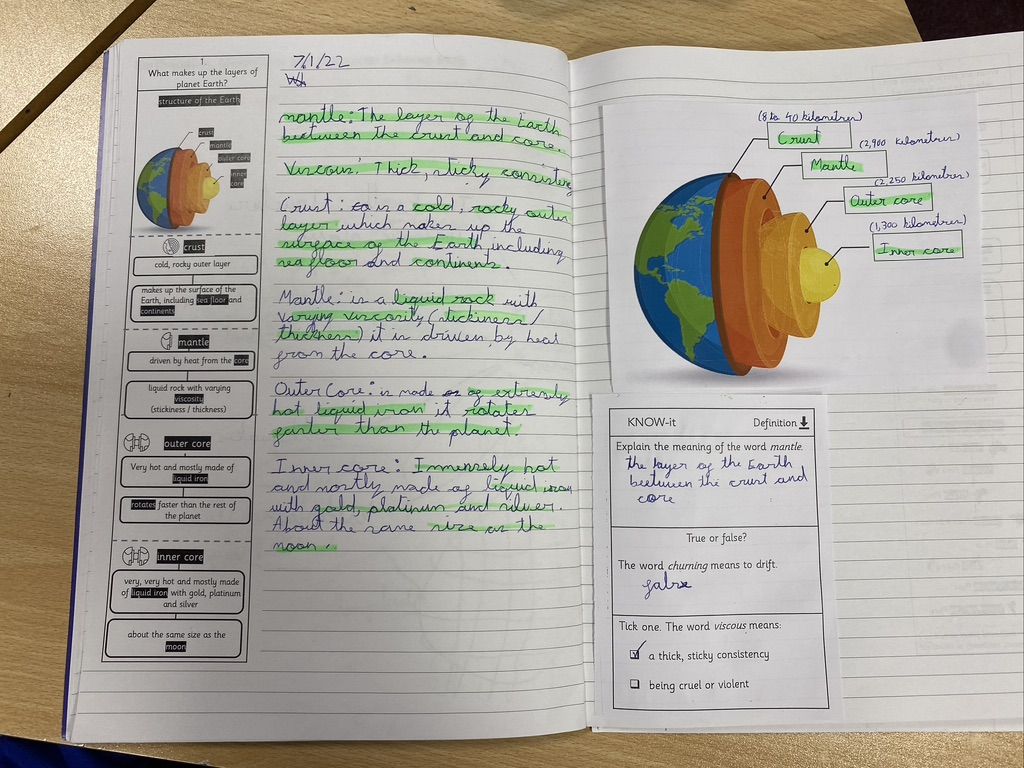 1.
What makes up the layers of
planet Earth?
structure of the Earth
crust
mantle
outer core
inner
core
crust
cold, rocky outer layer
makes up the surface of the
Earth, including sea floor and
continents
mantle
driven by heat from the core
liquid rock with varying
viscosity
(stickiness / thickness)
outer core
Very hot and mostly made of
liquid iron
rotates faster than the rest of
the planet
inner core
very, very hot and mostly made
of liquid iron with gold, platinum
and silver
about the same size as the
moon
7/1/22
mantle: The layer of the Earth
beetween the crust and core.
Viscous: Thick, sticky consistency
Crust: is a cold, rocky outer
layer which makes up the
surface of the Earth including
sea floor and continents.
Mantle: is a liquid rock with
varying viscosity (stickiness/
thickness) it is driven by heat
from the core.
Outer Core: is made of extremly
hot liquid iron it rotates
faster than the planet.
Inner core: Immensely hot
and mostly made of liquid iron
with gold, platinum and silver.
About the same size as the
moon.
(8 to 40 kilometres)
Crust
(2,900 kilometres)
Mantle
(2,250 kilometres)
Outer core
(1,300 kilometres)
Inner core
KNOW-it Definition
Explain the meaning of the word mantle.
the layer of the Earth
beetween the crust and
core
True or false?
The word churning means to drift.
false
Tick one. The word viscous means:
a thick, sticky consistency
being cruel or violent